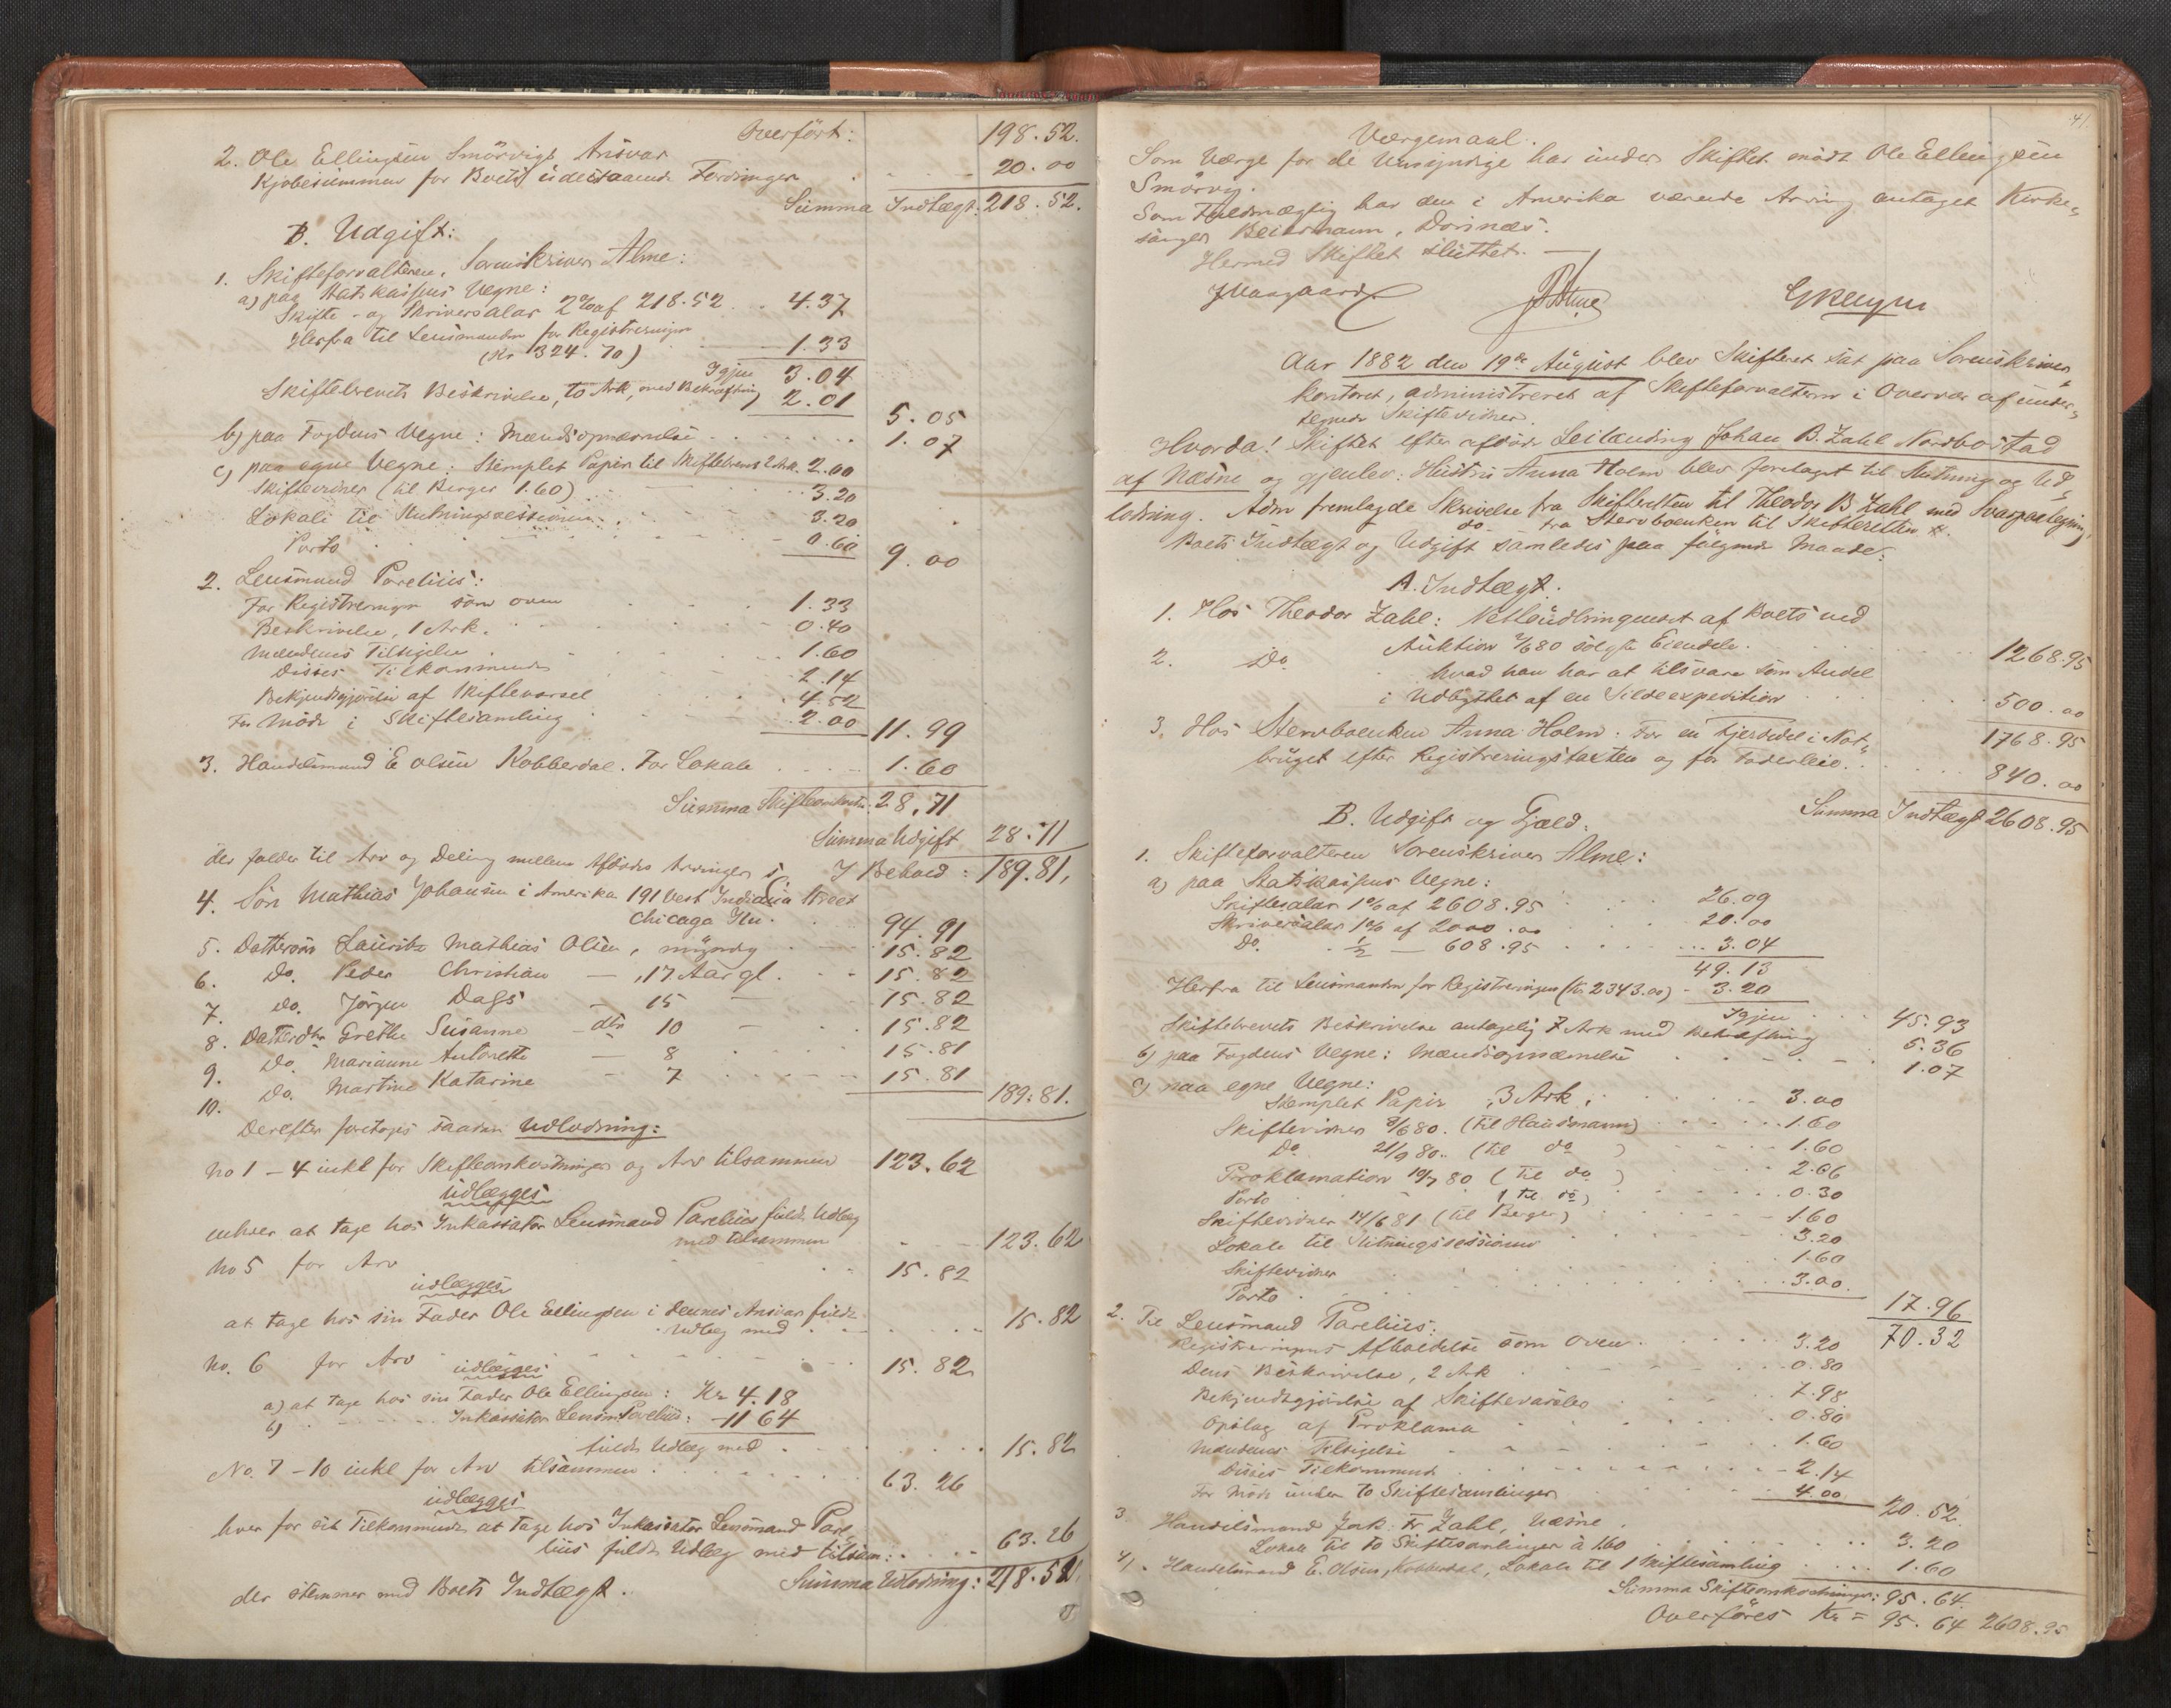 Overført: 198.52.
2. Ole Ellingsen Smörvigs Ansvar
Kjøbesummen for Boets udestaaende Fordringer 20.00
Summa Indtægt: 218.52.
B. Udgift:
1. Skifteforvalteren, Sorenskriver Alme:
a) paa Statskassens Vegne:
Skifte- og Skriversalar 2% af 218.52 4.37
Herfra til Lensmanden for Registreringen
(Kr 324.70) 1.33
Igjen 3.04
Skiftebrevets Beskrivelse, to Ark, med Bekræftning 2.01 5.05
b) paa Fogdens Vegne: Mændsopnævnelse 1.07
c) paa egne Vegne: Stemplet Papir til Skiftebrevet 2 Ark. 2.00
Skiftevidner (til Berger 1.60) 3.20
Lokale til Slutningssessionen 3.20
Porto 0.60 9.00
2. Lensmand Parelius:
For Registreringen som oven 1.33
Beskrivelse, 1 Ark. 0.40
Mændenes Tilsigelse 1.60
Disses Tilkommende 2.14
Bekjendtgjørelse af Skiftevarsel 4.52
For Møde i Skiftesamling 2.00 11.99
3. Handelsmand E Olsen Kobberdal. For Lokale 1.60
Summa Skifteomkostn: 28.71
Summa Udgift 28.71
I Behold: 189.81,
der falder til Arv og Deling mellem Afdødes Arvinger
4. Søn Mathias Johansen i Amerika 191 Vest Indiana Street
Chicago 94.91
5. Dattersøn Lauritz Mathias Olsen, myndig 15.82
6. Do. Peder Christian — , 17 Aar gl. 15.82
7. do. Jörgen Dags — 15 — 15.82
8. Datterdtr Grethe Susanne — dtr 10 — 15.82
9. Do. Marianne Antonette — 8 15.81
10. Do. Martine Katarine — 7 15.81 189.81.
Derefter foretages saadan Udlodning:
No 1 – 4 inkl for Skifteomkostninger og Arv tilsammen 123.62
udlægges
enhver at tage hos Inkassator Lensmand Parelius fuldt Udlæg
med tilsammen 123.62
No 5 for Arv 15.82
udlægges
at tage hos sin Fader Ole Ellingsen i dennes Ansvar fuldt
Udlæg med 15.82
No. 6 for Arv 15.82
udlægges
a) at tage hos sin Fader Ole Ellingsen: Kr 4.18
b) — Inkassator Lensm. Parelius: - 11 64
fuldt Udlæg med 15.82
No. 7 – 10 inkl for Arv tilsammen 63.26
udlægges
hver for sit Tilkommende at tage hos Inkassator Lensmand Pare-
lius fuldt Udlæg med tilsam: 63.26
Summa Udlodning: 218.52,
der stemmer med Boets Indtægt.
41.
Værgemaal.
Som Værge for de Umyndige har under Skiftet mødt Ole Ellingsen
Smörvig.
Som Fuldmægtig har den i Amerika værende Arving antaget Kirke-
sanger Beiermann, Dønnæs.
Hermed Skiftet sluttet. —
J Maagaard Alme
Aar 1882 den 19de August blev Skifteret sat paa Sorenskriver-
kontoret, administreret af Skifteforvalteren i Overvær af under-
tegnede Skiftevidner.
Hvorda! Skiftet efter afdøde Leilending Johan B. Zahl Nordbostad
af Næsne og gjenlev: Hustru Anna Holm blev foretaget til Slutning og Ud-
lodning. Adm fremlagde Skrivelse fra Skifteretten til Theodor B Zahl med Svarpaategning,
do fra Stervboenken til Skifteretten
Boets Indtægt og Udgift samledes paa følgende Maade:
A. Indtægt.
1. Hos Theodor Zahl: Nettoudbringendet af Boets ved
Auktion 2/6 80 solgte Eiendele. 1268.95
2. Do. hvad han har at tilsvare som Andel
i Udbyttet af en Sildeexpedition 500.00
1768.95
3. Hos Stervboenken Anna Holm: For en Fjerdedel i Not-
bruget efter Registreringstaxten og for Foderleie. 840.00
Summa Indtægt 2608.95
B. Udgift og Gjæld.
1. Skifteforvalteren Sorenskriver Alme:
a) paa Statskassens Vegne:
Skiftesalar 1% af 2608.95 26.09
Skriversalar 1% af 2000.00 20.00
Do. ½ — 608.95 3.04
49.13
Herfra til Lensmanden for Registreringen (Kr. 2343.00) - 3.20
Igjen 45.93
Skiftebrevets Beskrivelse antagelig 7 Ark med Bekræftning 5.36
b) paa Fogdens Vegne: Mændsopnævnelse 1.07
c) paa egne Vegne:
Stemplet Papir 3 Ark. 3.00
Skiftevidner 2/6 80. (til Hausmann) 1.60
Do 21/9 80. (til do) 1.60
Proklamation 10/7 80 (til do) 2.06
Porto (til do) 0.30
Skiftevidner 14/6 81 (til Berger) 1.60
Lokale til Slutningssessionen 3.20
Skiftevidner 1.60
Porto 3.00. 17.96
70.32
2. Til Lensmand Parelius:
Registreringens Afholdelse som oven 3.20
Dens Beskrivelse, 2 Ark 0.80
Bekjendtgjørelse af Skiftevarsler 7.98
Opslag af Proklama 0.80
Mændenes Tilsigelse 1.60
Disses Tilkommende 2.14
For Møde under to Skiftesamlinger 4.00 20.52.
3. Handelsmand Jak: Fr Zahl, Næsne.
Lokale til to Skiftesamlinger à 160 3.20
4). Handelsmand E. Olsen, Kobberdal, Lokale til 1 Skiftesamling 1.60
Summa Skifteomkostninger: 95.64.
Overføres Kr = 95.64 2608.95